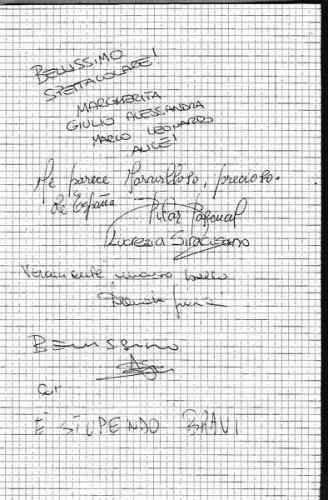 BELLISSIMO
SPETTACOLARE!
MARGHERITA
GIULIO ALESSANDRA
MARCO LEONARDO
ALICE!
Me parece Maravilloso, precioso.
de España Pilar Pascual
Lucrezia Siracusano
Veramente molto bello
BELLISSIMO
È STUPENDO BRAVI